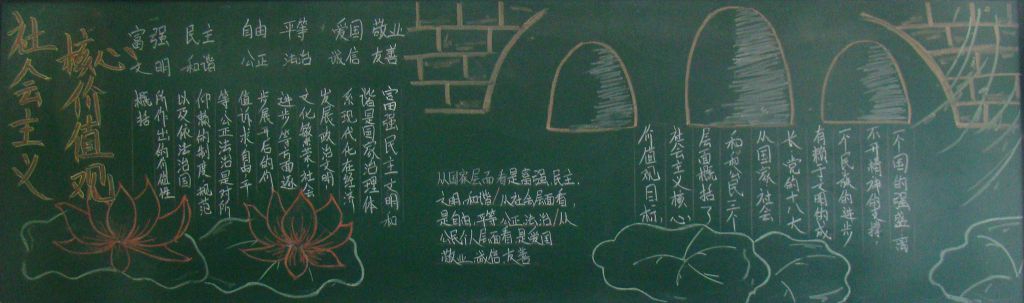 社会主义
核心价值观
富强 民主 自由 平等 爱国 敬业
文明 和谐 公正 法治 诚信 友善
富强民主文明和
谐是国家治理体
系现代化在经济
发展政治文明
文化繁荣社会
进步等方面逐
步展开后的价
值诉求自由平
等公正法治是对阶
仰赖的制度规范
以及依法治国
所作出的有价值性
概括
从国家层面看是富强民主、
文明、和谐/从社会层面看,
是自由、平等公正法治/从
公民个人层面看是爱国
敬业诚信友善
一个国的强盛离
不开精神的支撑
一个民族的进步
有赖于文明的成
长党的十八大
从国家社会
和公民三个
层面概括了
社会主义核心
价值观目标,